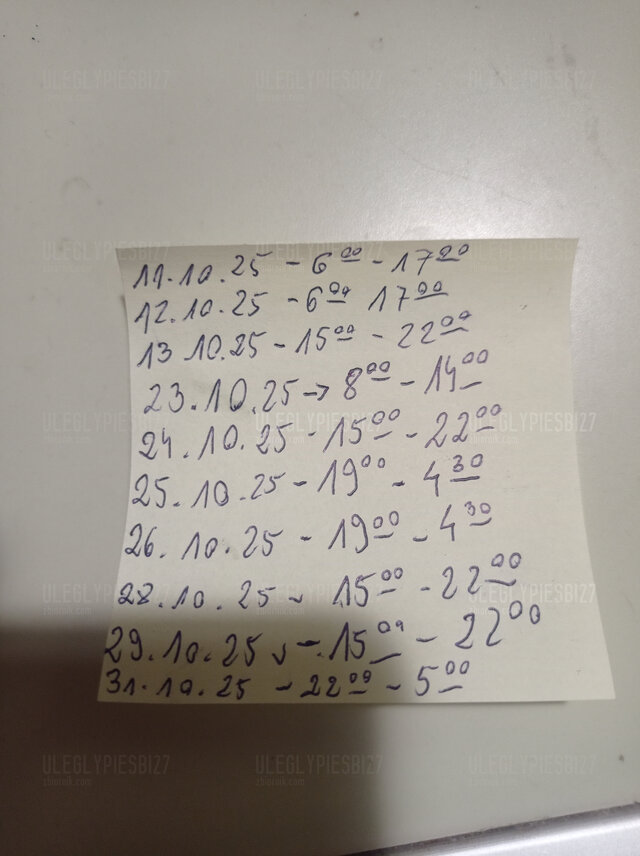 11.10.25 - 6 00 - 17 00
12.10.25 - 6 00 17 00
13 10.25 - 15 00 - 22 00
23.10.25 → 8 00 - 14 00
24.10.25 - 15 00 - 22 00
25.10.25 - 19 00 - 4 30
26.10.25 - 19 00 - 4 30
28.10.25 v 15 00 - 22 00
29.10.25 v - 15 00 - 22 00
31.10.25 - 22 00 - 5 00
ULEGLYPIESBI27
zbiornik.com